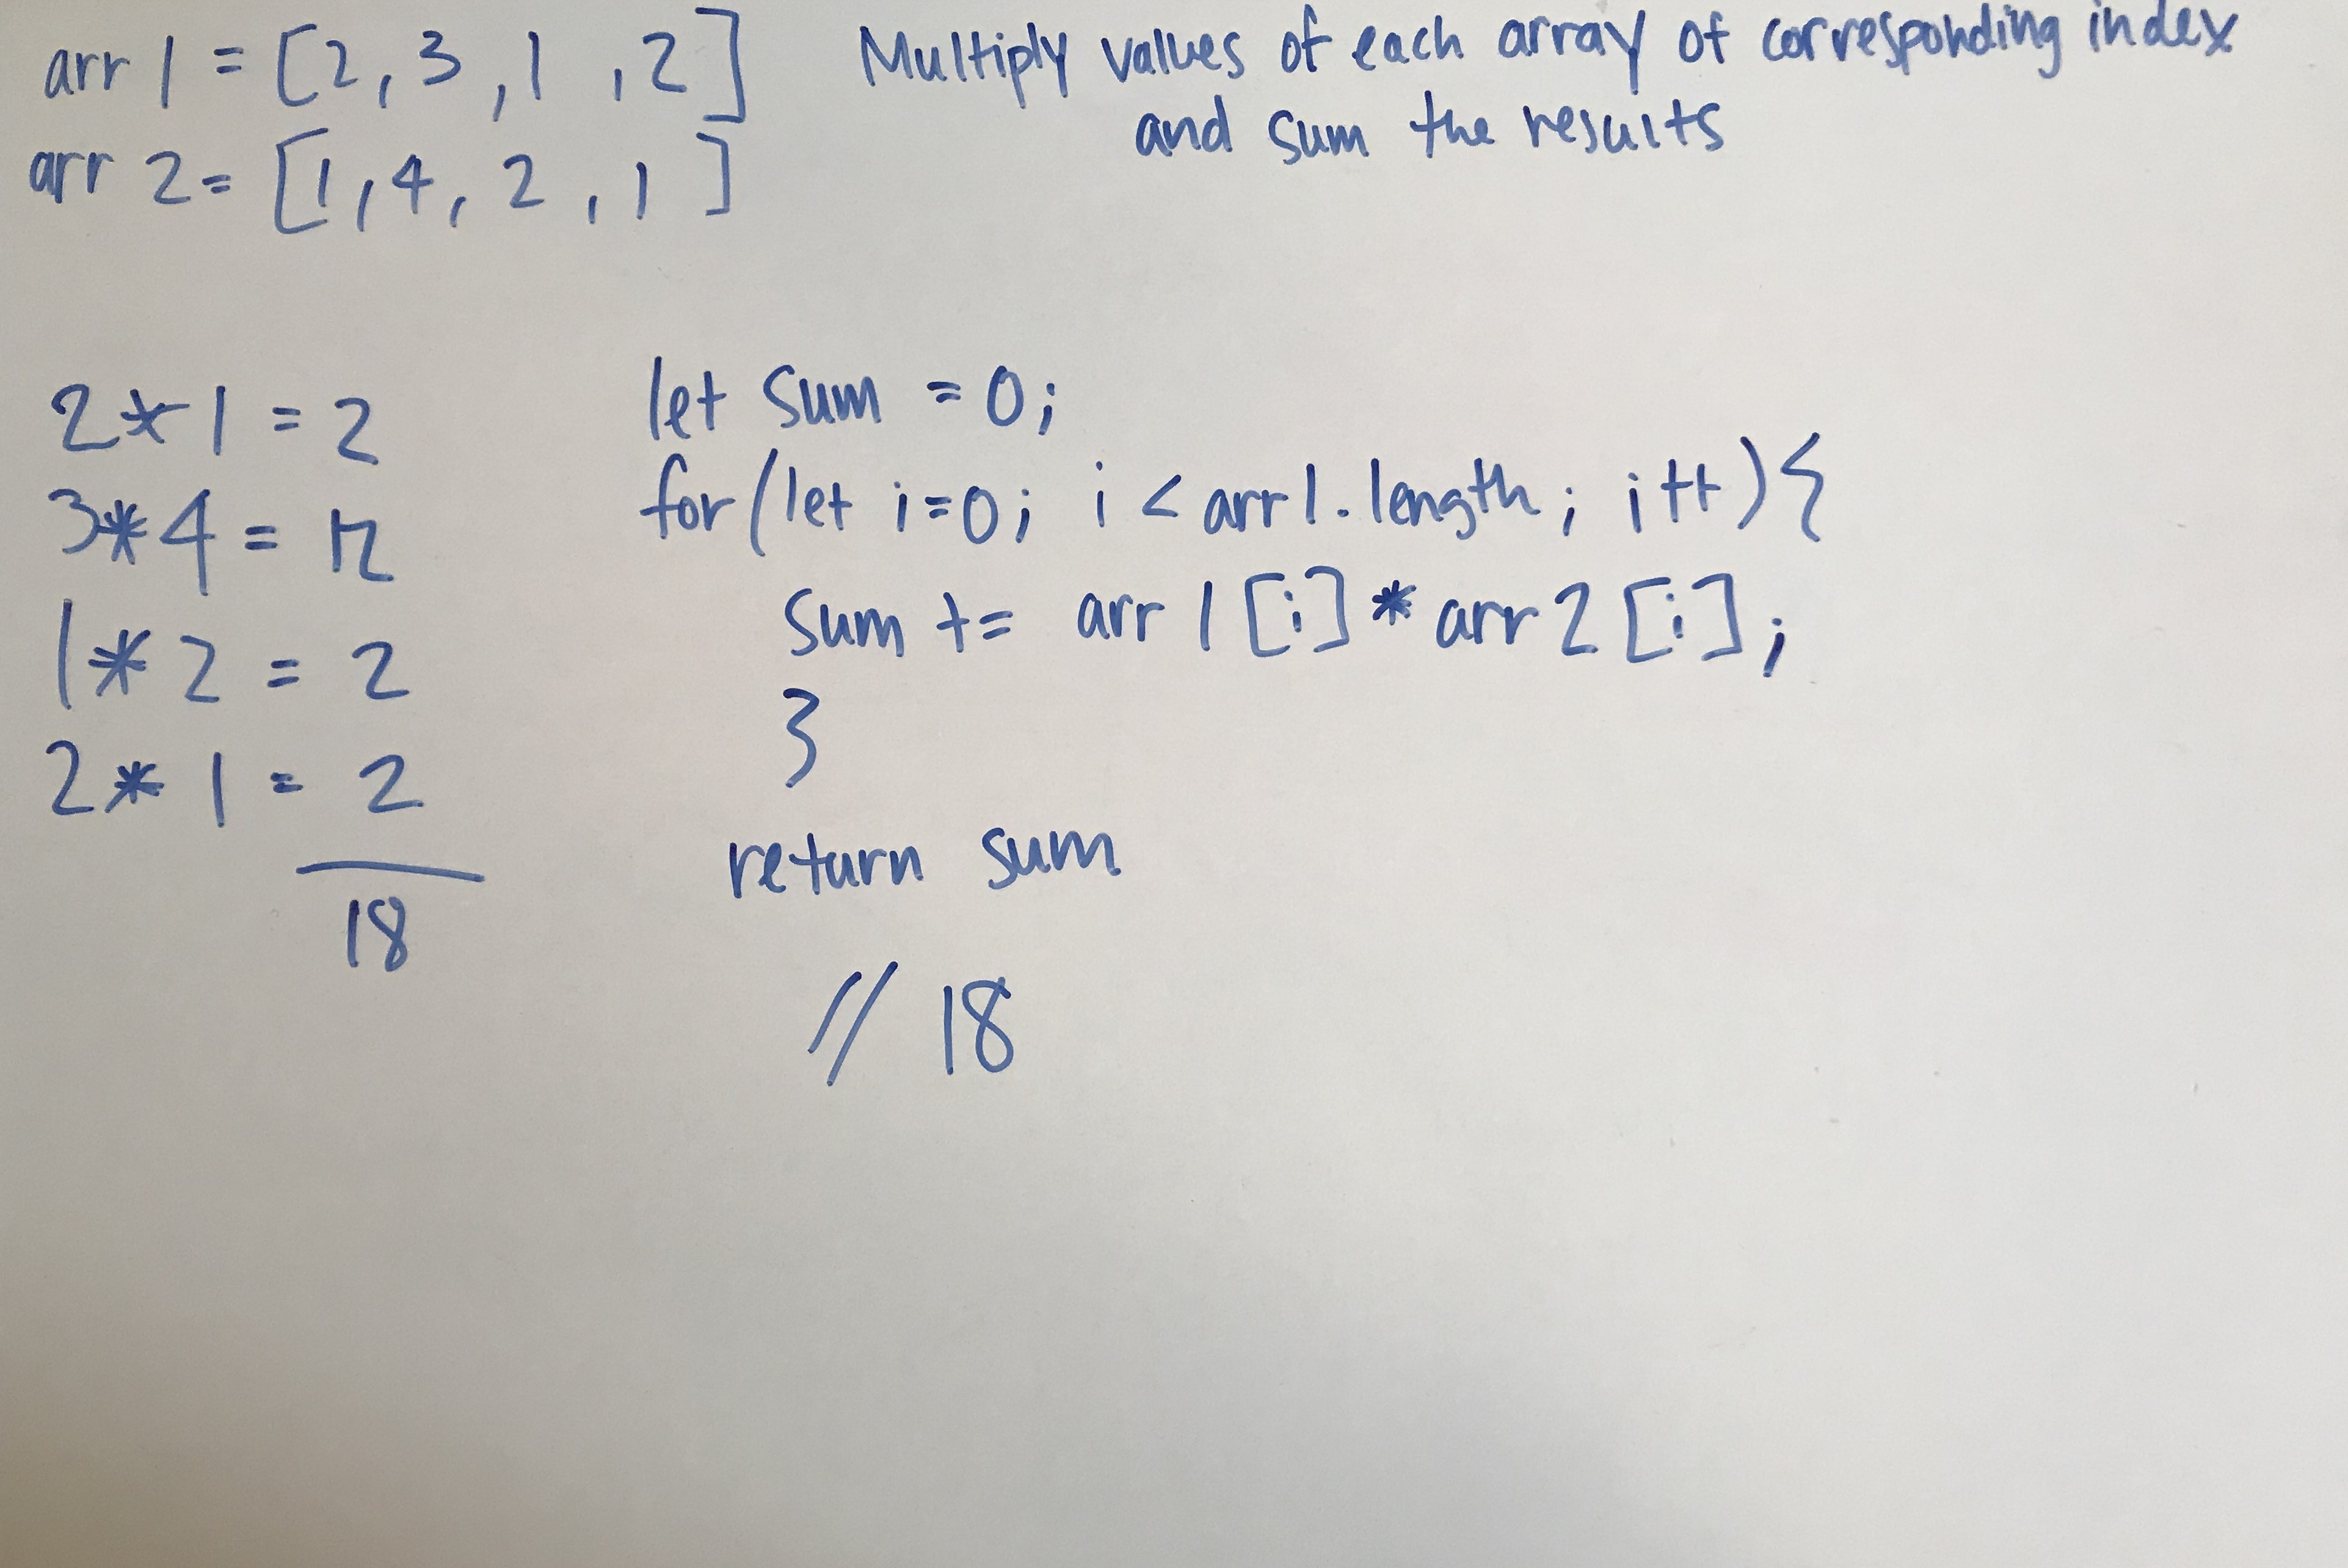 arr 1 = [2, 3, 1, 2]
arr 2 = [1, 4, 2, 1]
Multiply values of each array of corresponding index
and sum the results
2 * 1 = 2
3 * 4 = 12
1 * 2 = 2
2 * 1 = 2
18
let sum = 0;
for (let i=0; i < arr1.length; i++) {
sum += arr 1 [i] * arr 2 [i];
}
return sum
// 18